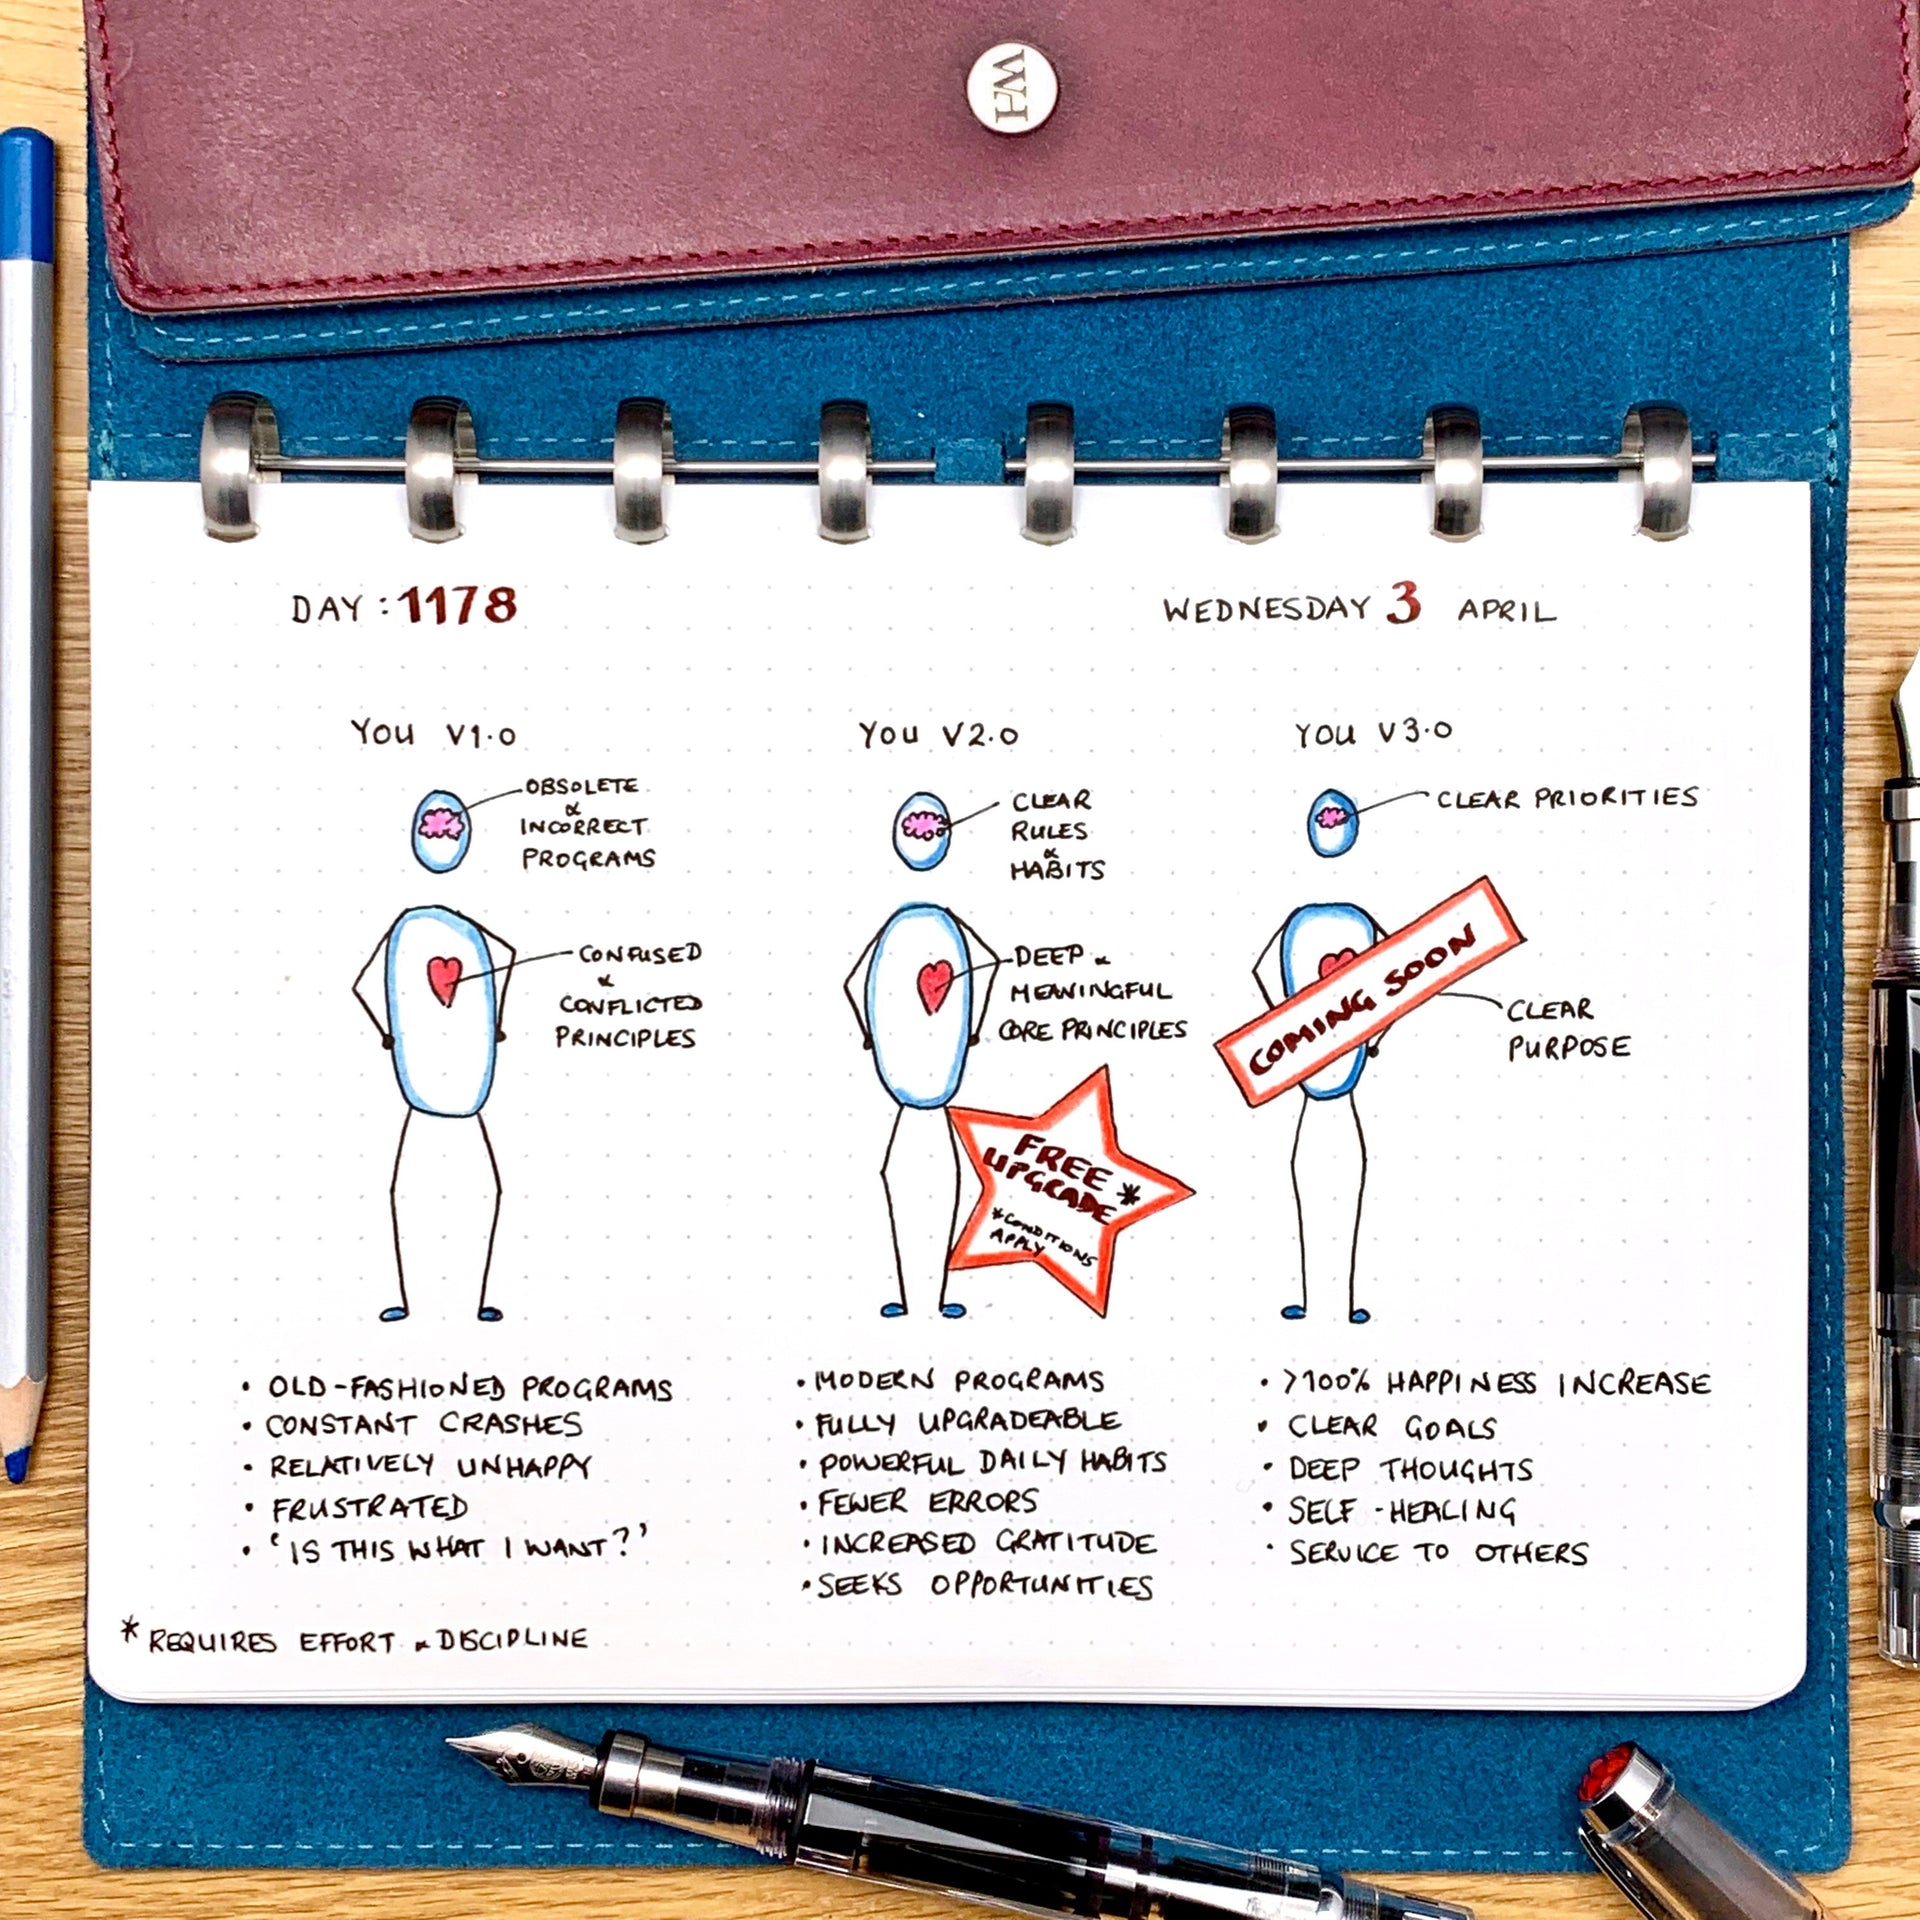 WH
DAY : 1178
WEDNESDAY 3 APRIL
YOU V1.0
OBSOLETE
&
INCORRECT
PROGRAMS
CONFUSED
&
CONFLICTED
PRINCIPLES
• OLD-FASHIONED PROGRAMS
• CONSTANT CRASHES
• RELATIVELY UNHAPPY
• FRUSTRATED
• 'IS THIS WHAT I WANT?'
YOU V2.0
CLEAR
RULES
&
HABITS
DEEP &
MEANINGFUL
CORE PRINCIPLES
FREE
UPGRADE *
*CONDITIONS
APPLY
• MODERN PROGRAMS
• FULLY UPGRADEABLE
• POWERFUL DAILY HABITS
• FEWER ERRORS
• INCREASED GRATITUDE
• SEEKS OPPORTUNITIES
YOU V3.0
CLEAR PRIORITIES
COMING SOON
CLEAR
PURPOSE
• >100% HAPPINESS INCREASE
• CLEAR GOALS
• DEEP THOUGHTS
• SELF-HEALING
• SERVICE TO OTHERS
* REQUIRES EFFORT & DISCIPLINE